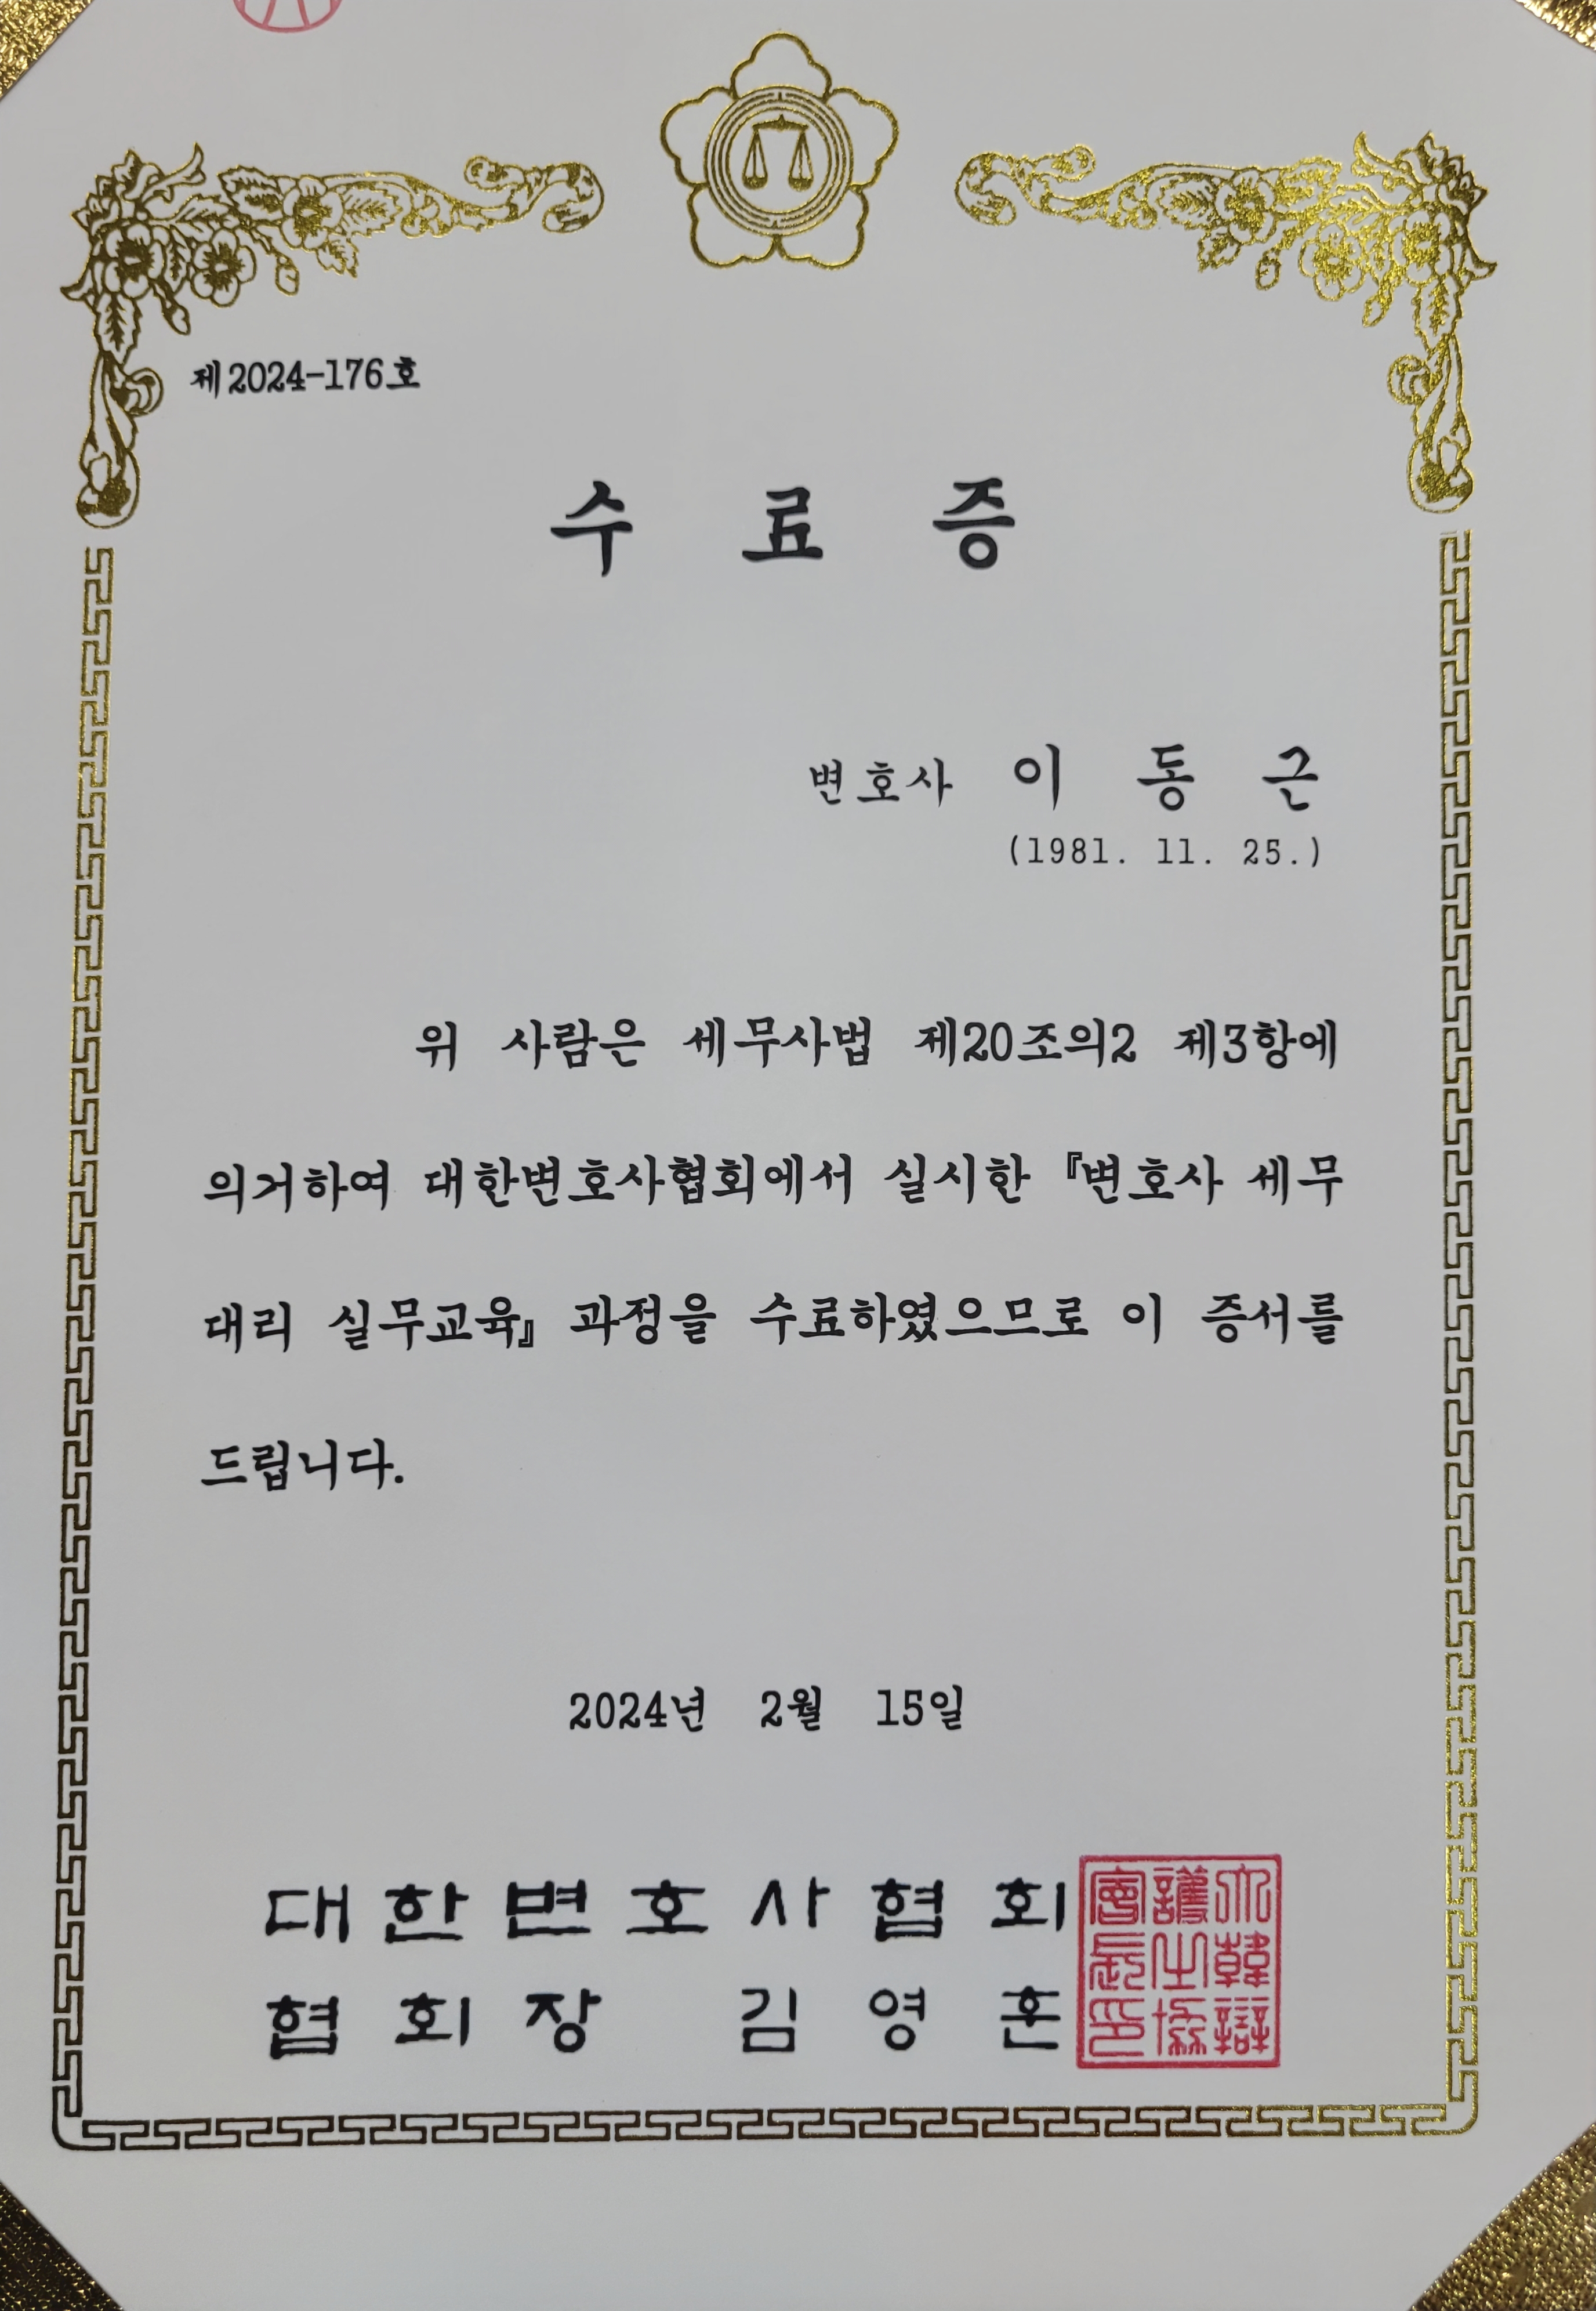 제2024-176호
수 료 증
변호사 이 동 근
(1981. 11. 25.)
위 사람은 세무사법 제20조의2 제3항에
의거하여 대한변호사협회에서 실시한 『변호사 세무
대리 실무교육』 과정을 수료하였으므로 이 증서를
드립니다.
2024년 2월 15일
대한변호사협회
협회장 김영훈
大韓辯
護士協
會長印